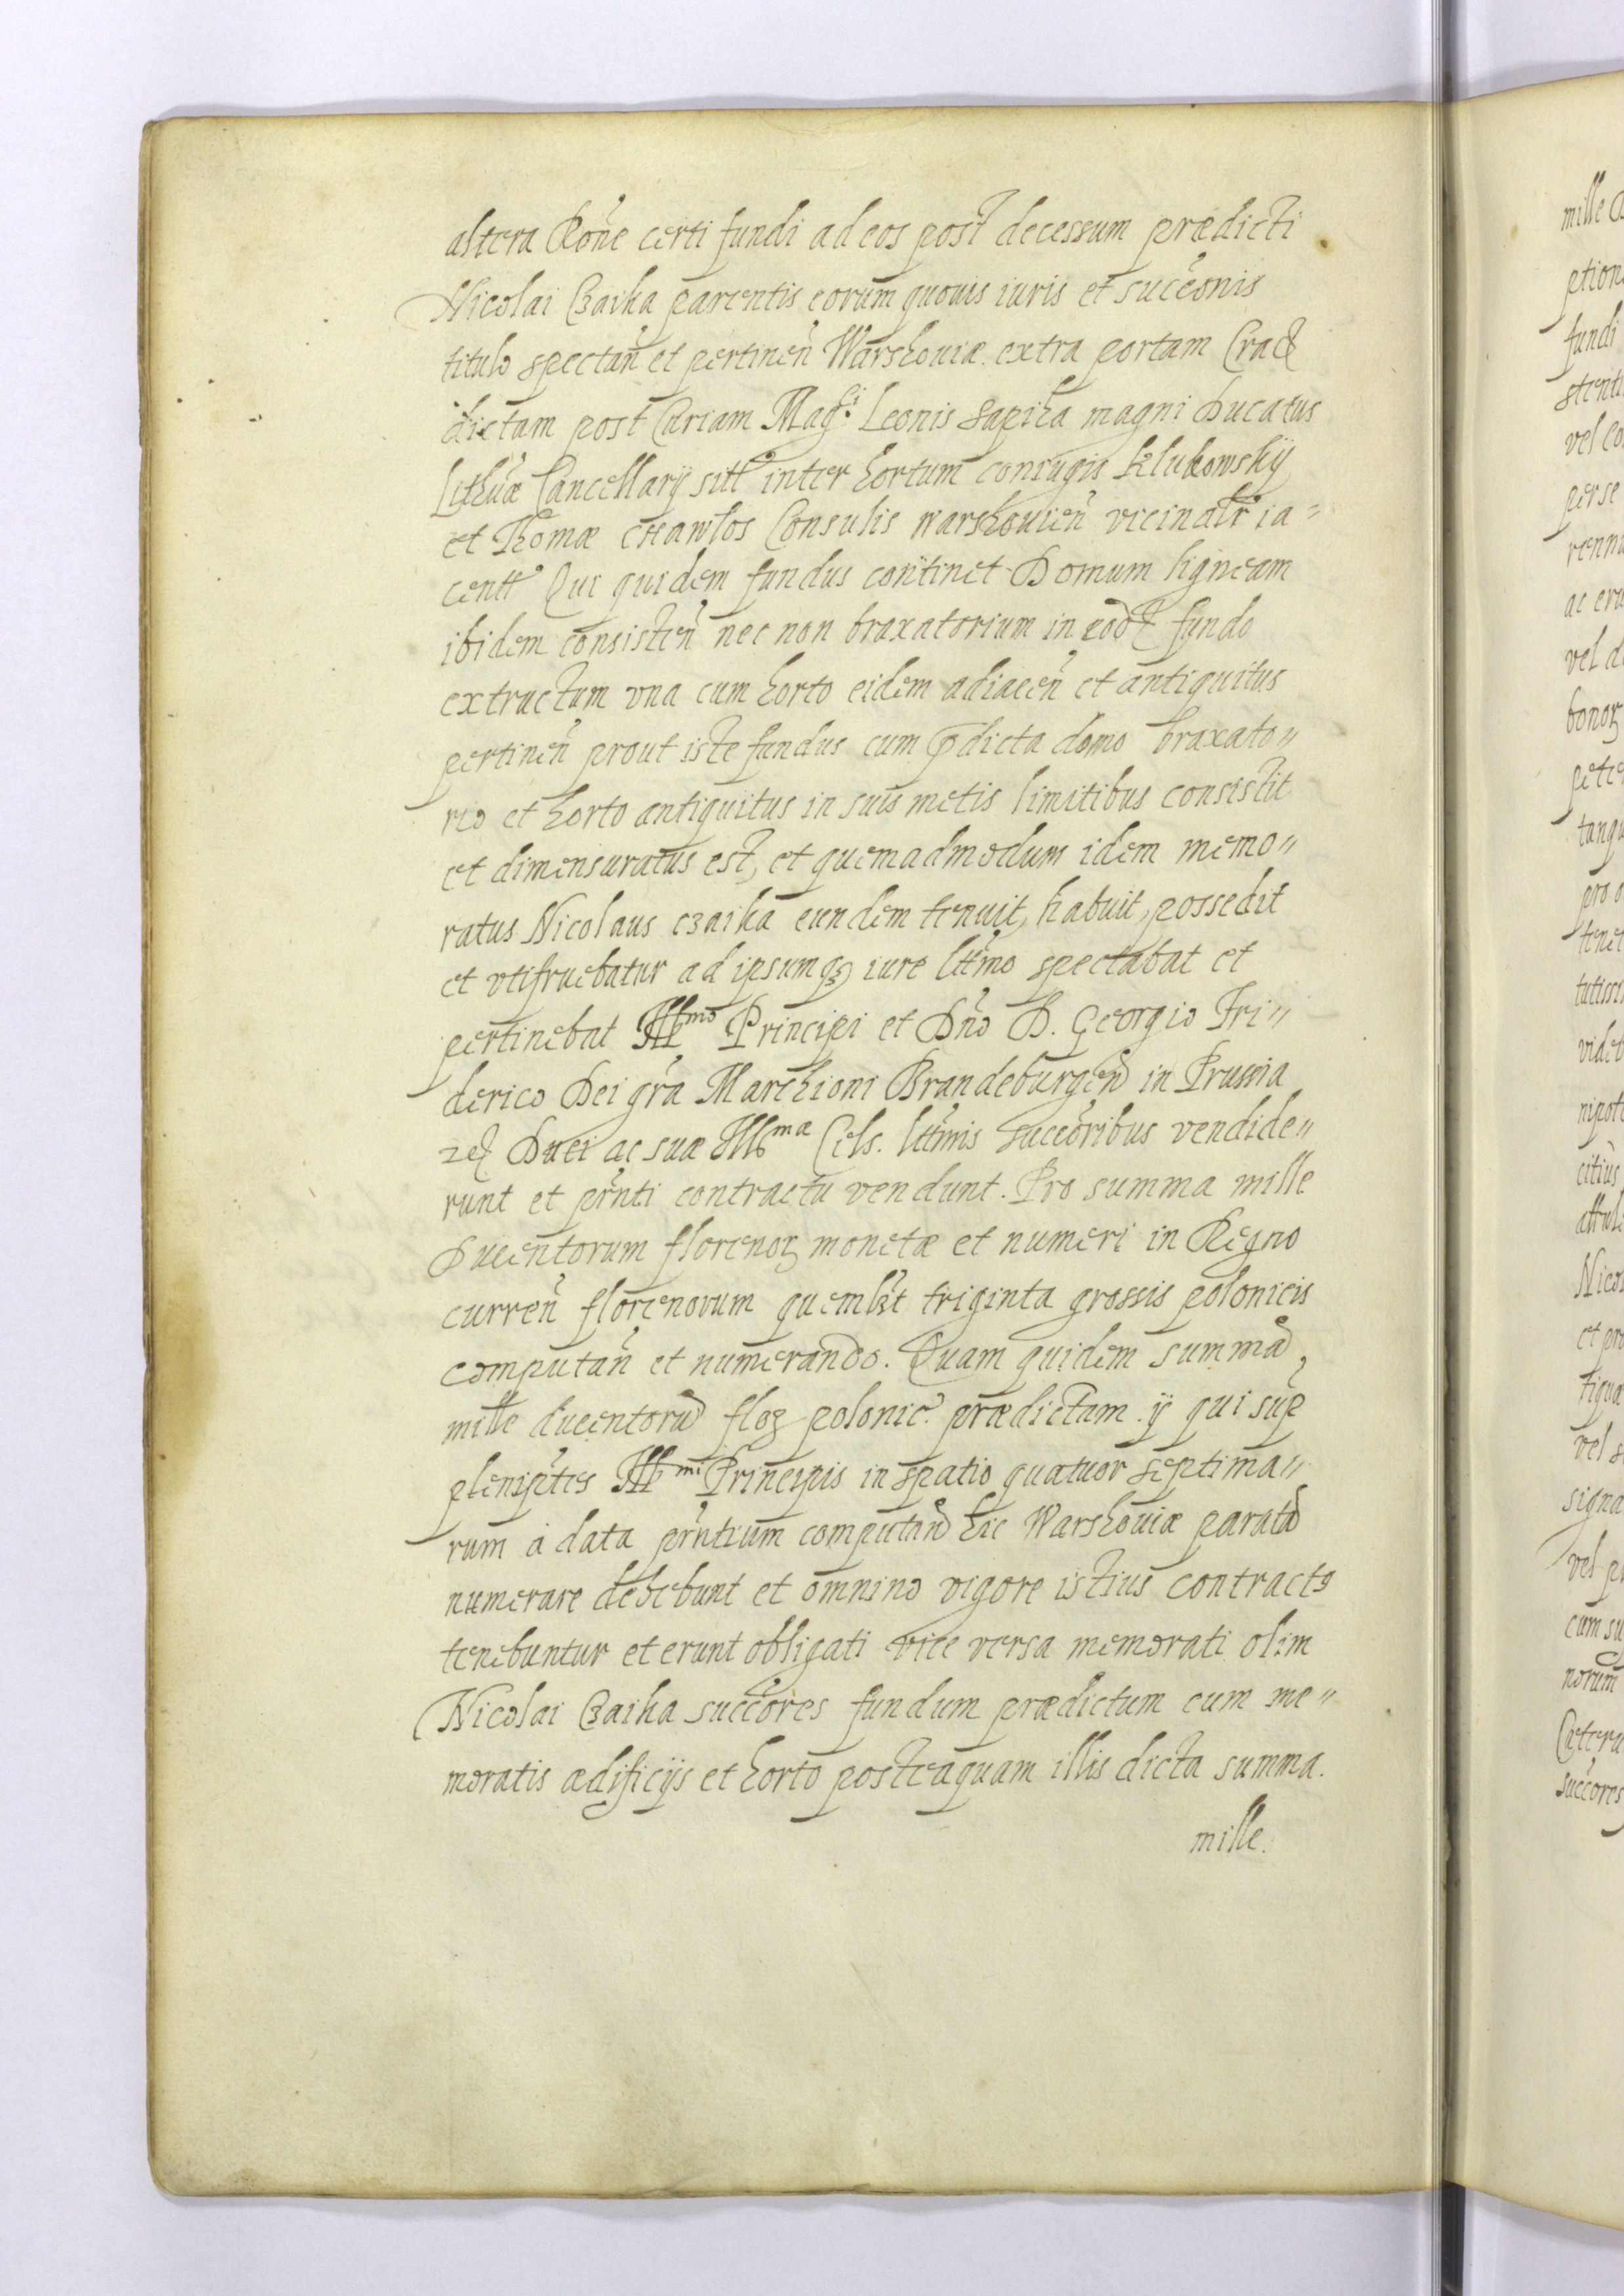 altera Rone certi fundi ad eos post decessum prædicti
Nicolai Czaika parentis eorum quouis iuris et succonis
titulo spectan et pertinen Warshouiæ extra portam Crac
dictam post Curiam Magci Leonis Sapiha magni Ducatus
Lithuæ Cancellarij sitt inter hortum coniugis Klukowskij
et Thomæ Consulis Warshouien vicinatr ia=
centt Qui quidem fundus continet Domum ligneam
ibidem consisten nec non braxatorium in eod fundo
extructum vna cum horto eidem adiacen et antiquitus
pertinen prout iste fundus cum pdicta domo braxato"
rio et horto antiquitus in suis metis limitibus consistit
et dimensuratus est, et quemadmodum idem memo"
ratus Nicolaus Czaika eundem tenuit, habuit, possedit
et vtifruebatur ad ipsumqz iure lttmo spectabat et
pertinebat Illmo Principi et Dno D. Georgio Fri"
derico Dei gra Marchioni Brandeburgen in Prussia
Duci ac suæ Illmæ Cels. lttmis succoribus vendide"
runt et prnti contractu vendunt. Pro summa mille
Ducentorum florenoz monetæ et numeri in Regno
curren florenorum quemlzt triginta grossis polonicis
computan et numerando. Quam quidem summa
mille ducentoru floz polonic. prædictam ij qui sup
pleniptes Illmi Principis in spatio quatuor septima"
rum a data prntium computan hic Warshouiæ parata
numerare debebunt et omnino vigore istius contractg
tenebuntur et erunt obligati vice versa memorati olim
Nicolai Czaika succores fundum prædictum cum me"
moratis ædificijs et horto posteaquam illis dicta summa.
mille.